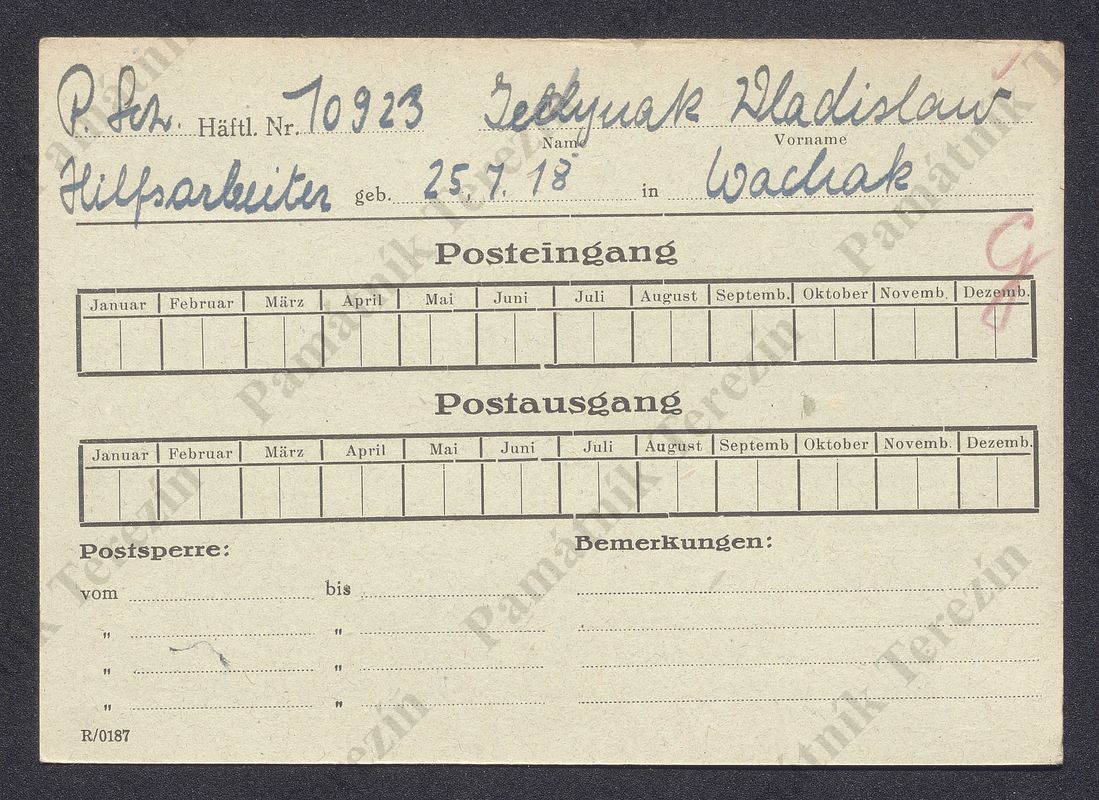 P. Sch. Häftl. Nr. 10923 Jedynak Wladislaw
Name Vorname
Hilfsarbeiter geb. 25.7.18 in Wachak
Posteingang
Januar Februar März April Mai Juni Juli August Septemb. Oktober Novemb. Dezemb.
Postausgang
Januar Februar März April Mai Juni Juli August Septemb Oktober Novemb. Dezemb.
Postsperre: Bemerkungen:
vom bis
" "
" "
" "
R/0187
Památník Terezín